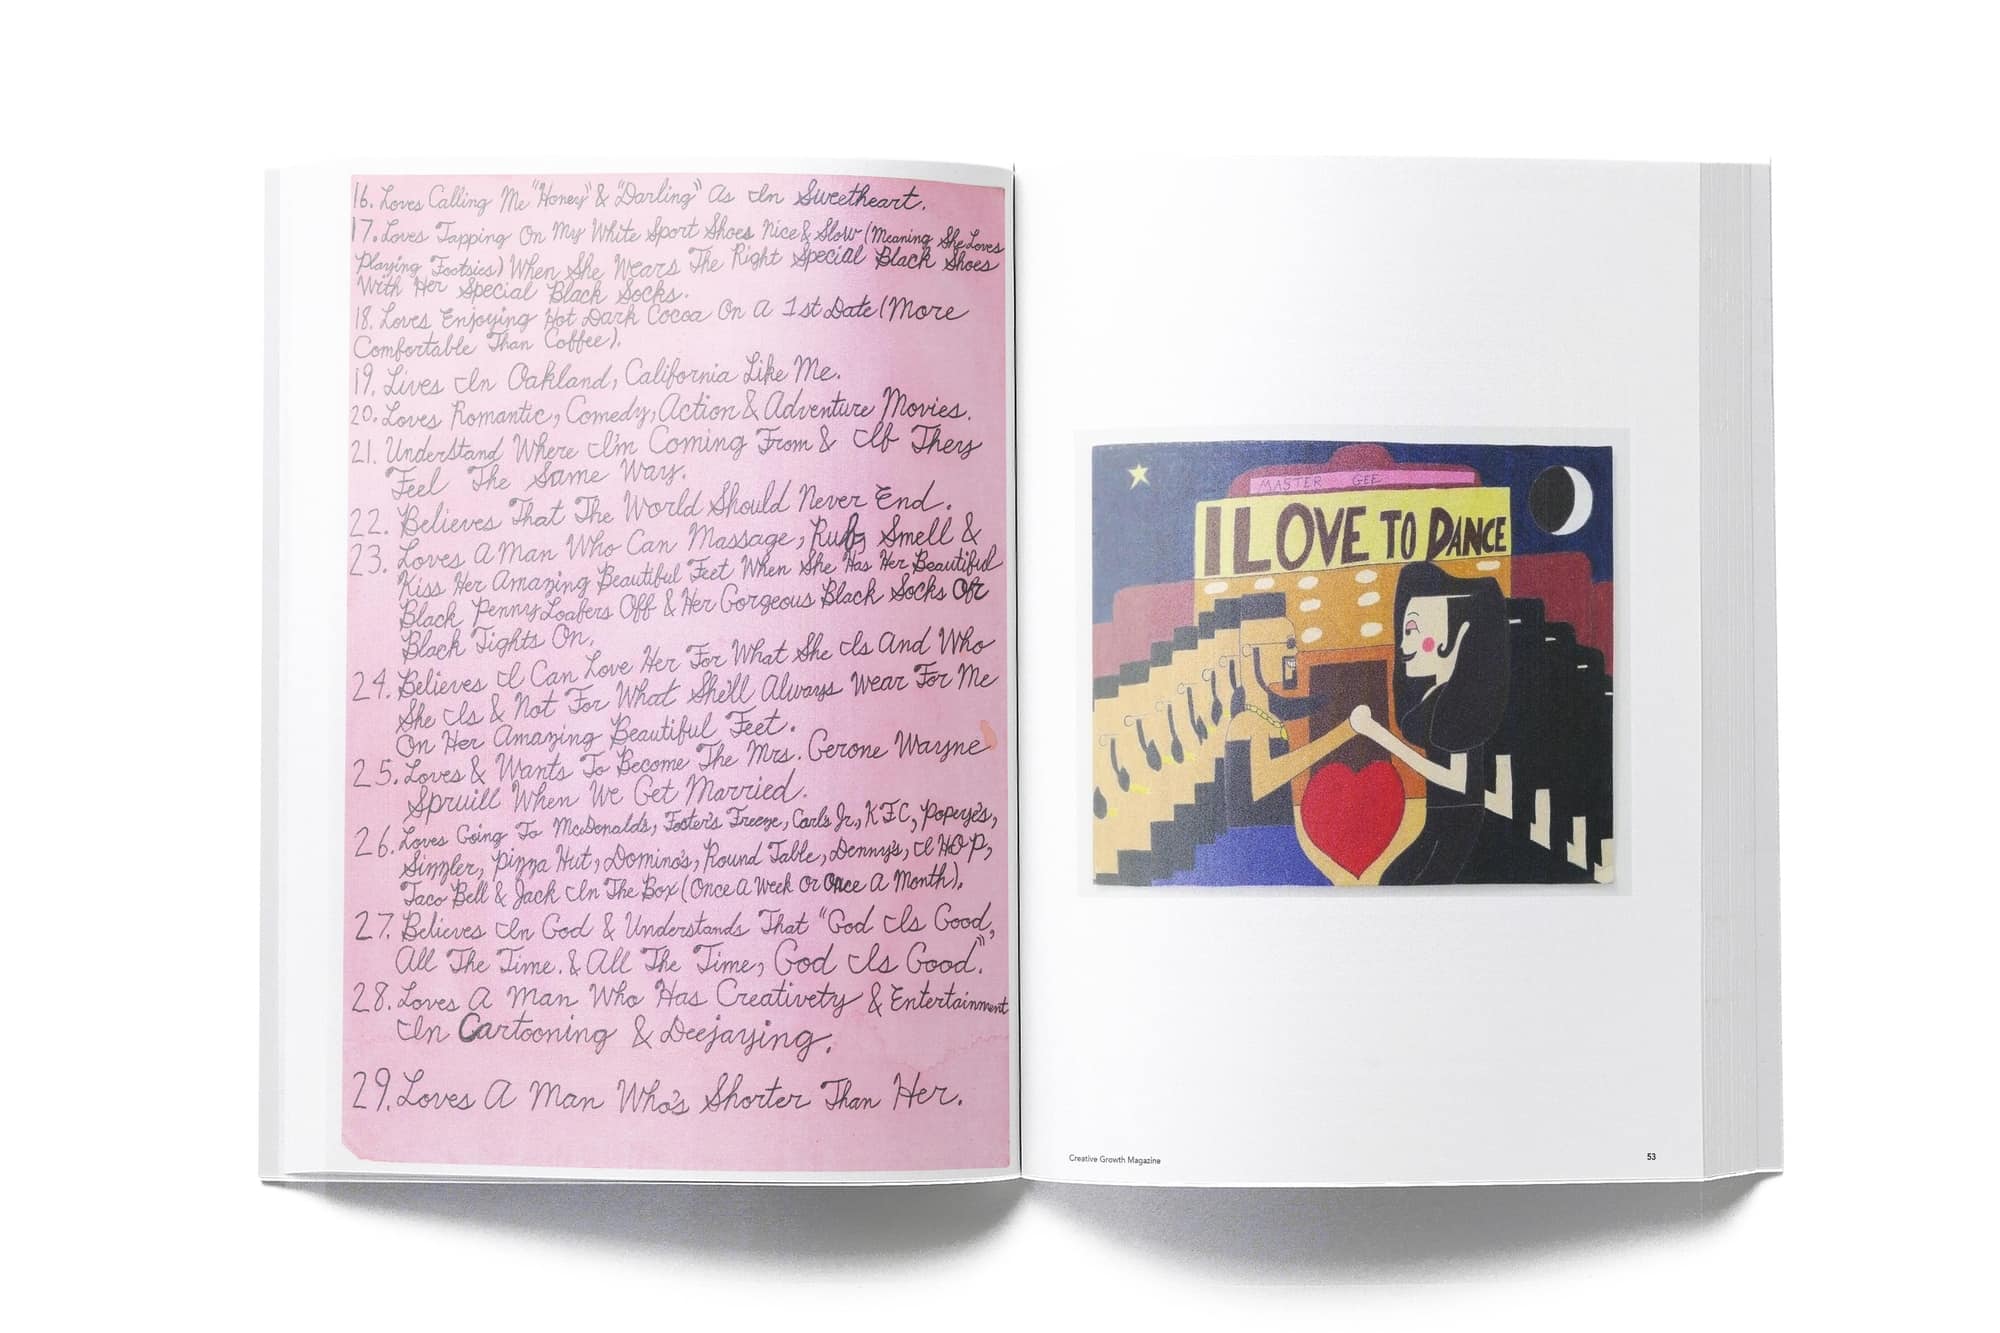 16. Loves Calling Me "Honey" & "Darling" As In Sweetheart.
17. Loves Tapping On My White Sport Shoes Nice & Slow (Meaning She Loves
Playing Footsies) When She Wears The Right Special Black Shoes
With Her Special Black Socks.
18. Loves Enjoying Hot Dark Cocoa On A 1st Date (More
Comfortable Than Coffee).
19. Lives In Oakland, California Like Me.
20. Loves Romantic, Comedy, Action & Adventure Movies.
21. Understand Where I'm Coming From & If They
Feel The Same Way.
22. Believes That The World Should Never End.
23. Loves A Man Who Can Massage, Rub, Smell &
Kiss Her Amazing Beautiful Feet When She Has Her Beautiful
Black Penny Loafers Off & Her Gorgeous Black Socks Or
Black Tights On.
24. Believes I Can Love Her For What She Is And Who
She Is & Not For What She'll Always Wear For Me
On Her Amazing Beautiful Feet.
25. Loves & Wants To Become The Mrs. Gerone Wayne
Spruill When We Get Married.
26. Loves Going To McDonald's, Foster's Freeze, Carl's Jr., KFC, Popeye's,
Sizzler, Pizza Hut, Domino's, Round Table, Denny's, I HOP,
Taco Bell & Jack In The Box (Once A Week Or Once A Month).
27. Believes In God & Understands That "God Is Good,
All The Time. & All The Time, God Is Good."
28. Loves A Man Who Has Creativety & Entertainment
In Cartooning & Deejaying.
29. Loves A Man Who's Shorter Than Her.
MASTER GEE
I LOVE TO DANCE
Creative Growth Magazine
53